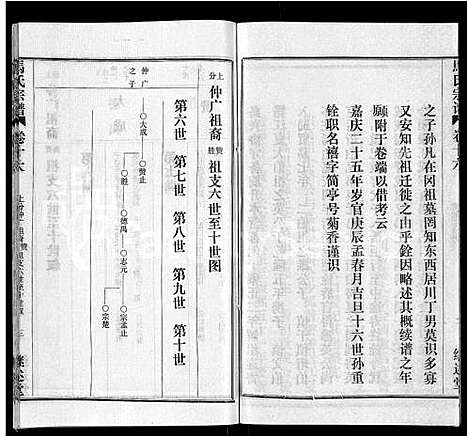 马氏宗谱 卷十六
之子孙凡在冈祖墓罔知东西居川丁男莫识多寡
又安知先祖迁徙之由乎銓因略述其概续谱之年
愿附于卷端以借考云
嘉庆二十五年岁官庚辰孟春月吉旦十六世孙重
铨职名禧字简亭号菊香谨识
上分
仲广祖裔
赞胜
祖支六世至十世图
第六世 第七世 第八世 第九世 第十世
仲广之子
○大成
○赞止
○胜
○德禹
○志元
○宗孟止
○宗楚
马氏宗谱
卷十六